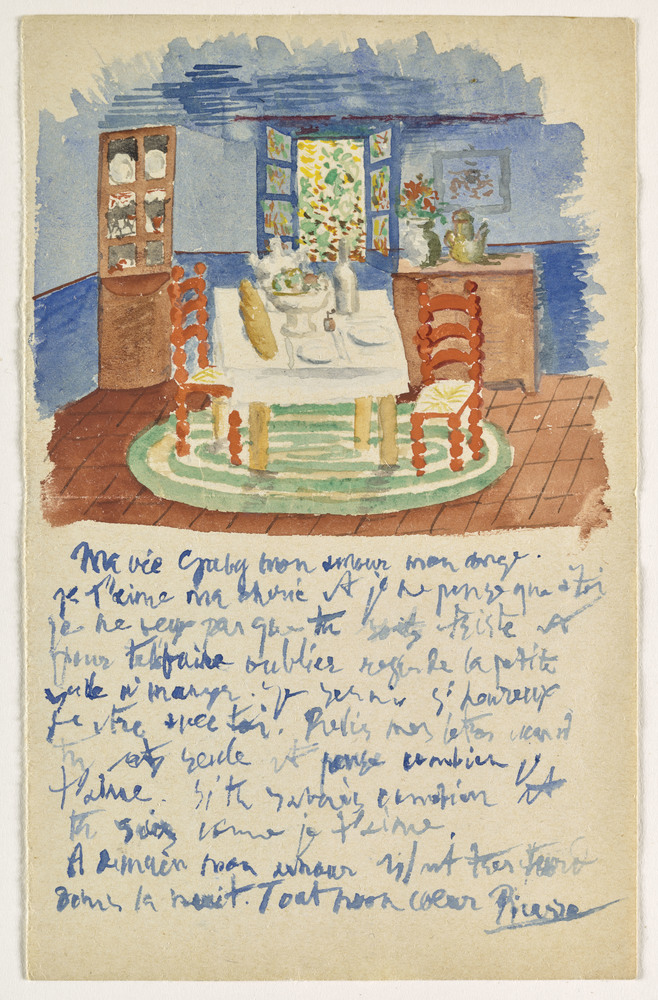 Ma vie Gaby mon amour mon ange.
je t'aime ma cherie et je ne pense que à toi
je ne veux pas que tu soits triste et
pour te faire oublier regarde la petite
salle a manger. je serais si heureux
avec toi. Relis mes letres cuand
tu ets seule et pense combien je
t'aime. Si tu savais combien et
tu sais comme je t'aime.
A demain mon amour il est tres tard
dans la nuit. Tout mon cœur Picasso